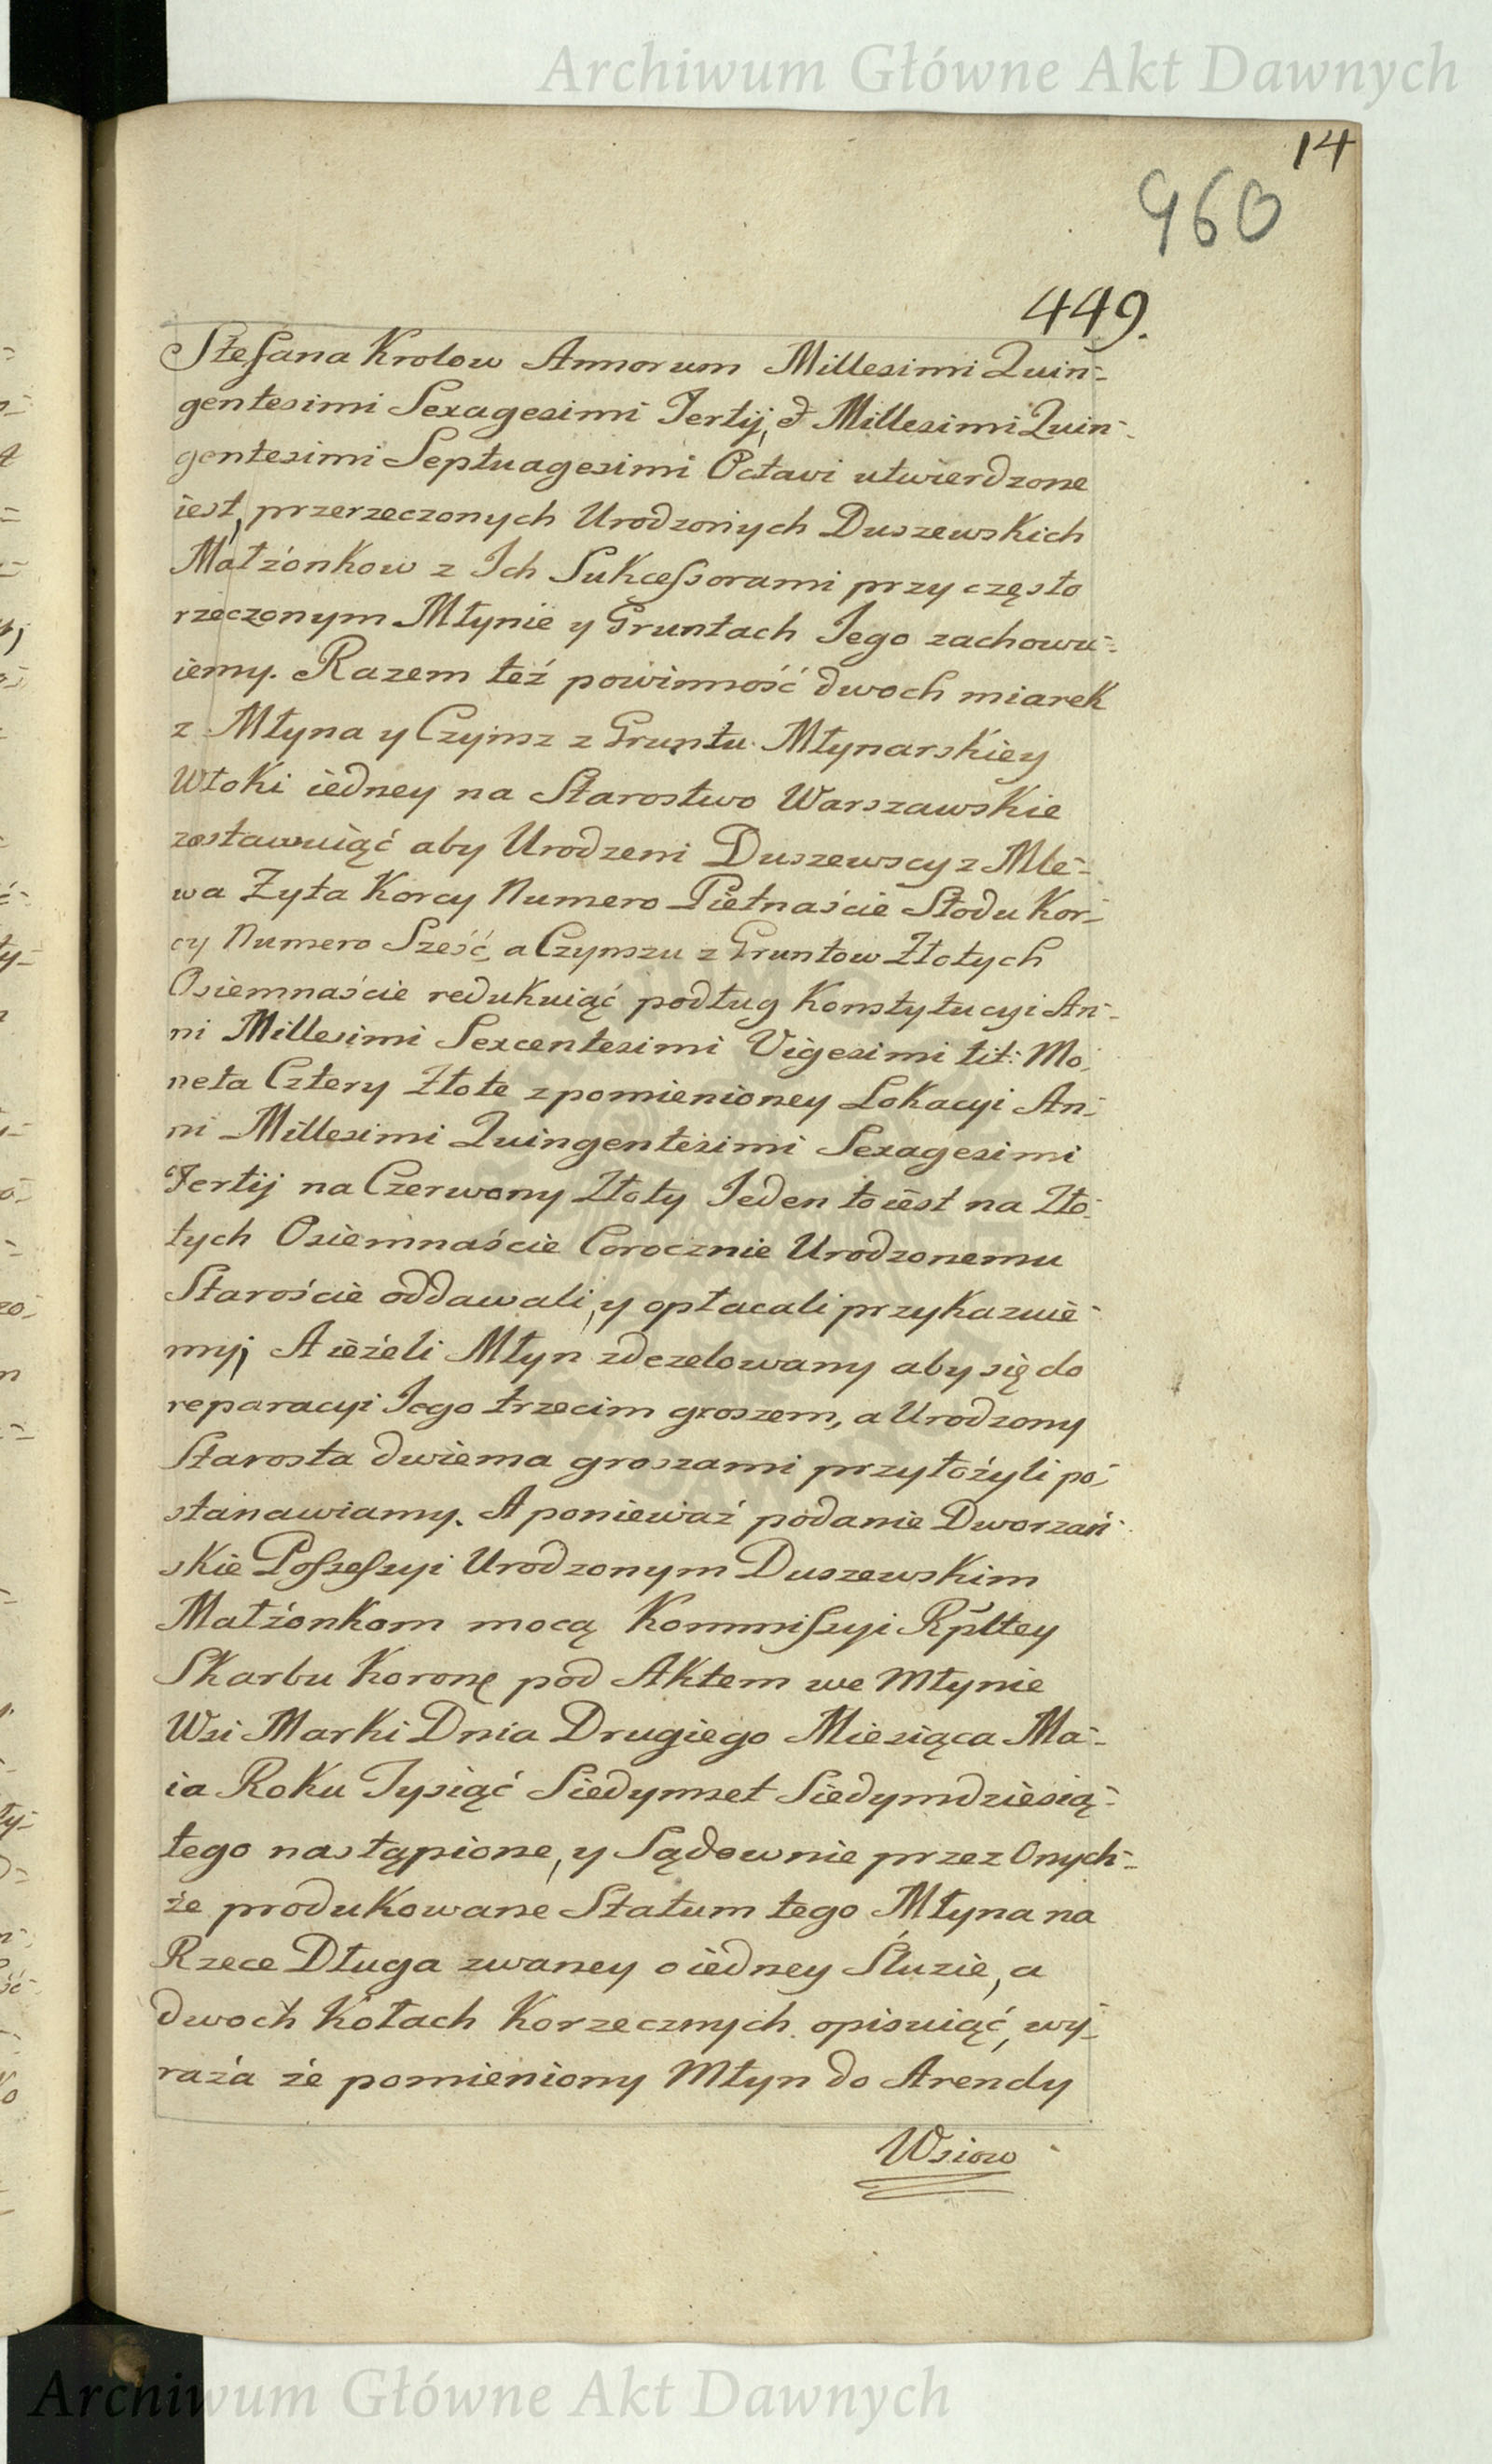 Archiwum Główne Akt Dawnych
14
960
449.
Stefana Krolow Annorum Millesimi Quin-
gentesimi Sexagesimi Tertij, & Millesimi Quin-
gentesimi Septuagesimi Octavi utwierdzone
iest, przerzeczonych Urodzonych Duszewskich
Małżonkow z Ich Sukcessorami przy często
rzeczonym Młynie y Gruntach Jego zachowu-
iemy. Razem też powinność dwoch miarek
z Młyna y Czynsz z Gruntu Młynarskiey
Włoki iedney na Starostwo Warszawskie
zostawuiąć aby Urodzeni Duszewscy z Mle-
wa Zyta Korcy Numero Pietnaście Słodu Kor-
cy Numero Sześć, a Czynszu z Gruntow Złotych
Osiemnaście redukuiąć podług Konstytucyi An-
ni Millesimi Sexcentesimi Vigesimi tit: Mo-
neta Cztery Złote z pomienioney Lokacyi An-
ni Millesimi Quingentesimi Sexagesimi
Tertij na Czerwony Złoty Jeden to iest na Zło-
tych Osiemnaście Corocznie Urodzonemu
Staroście oddawali, y opłacali przykazuie-
my; A ieżeli Młyn zdezelowany aby się do
reparacyi Jego trzecim groszem, a Urodzony
Starosta dwiema groszami przyłożyli po-
stanawiamy. A ponieważ podanie Dworzań-
skie Possessyi Urodzonym Duszewskim
Małżonkom mocą Kommissyi Rpltey
Skarbu Koronę pod Aktem we Młynie
Wsi Marki Dnia Drugiego Miesiąca Ma-
ia Roku Tysiąć Siedymset Siedymdziesią-
tego nastąpione, y Sądownie przez Onych-
że produkowane Statum tego Młyna na
Rzece Długa zwaney o iedney Sluzie, a
dwoch Kołach Korzecznych opisuiąć, wy-
raża że pomieniony Młyn do Arendy
Wsiow
Archiwum Główne Akt Dawnych